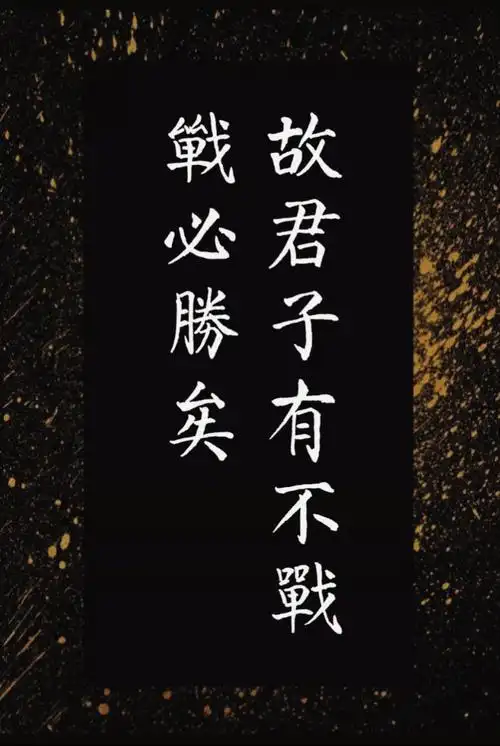 故君子有不戰
戰必勝矣